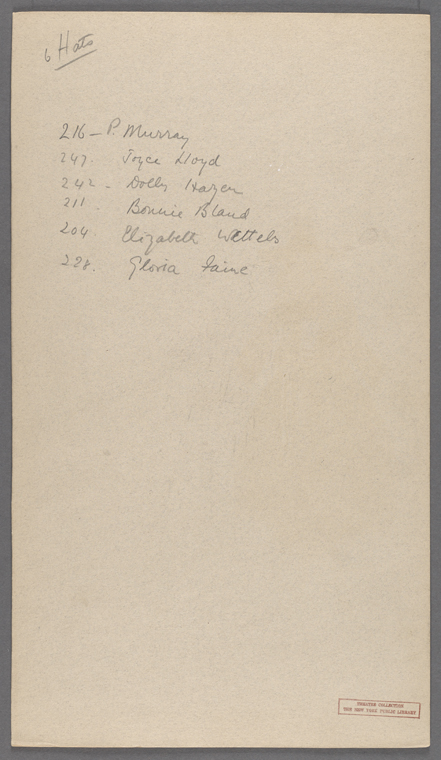 6 Hats
216 - P. Murray
247. Joyce Lloyd
242 - Dolly Hazen
211. Bonnie Bland
204. Elizabeth Wettels
228. Gloria Faine
THEATRE COLLECTION
THE NEW YORK PUBLIC LIBRARY